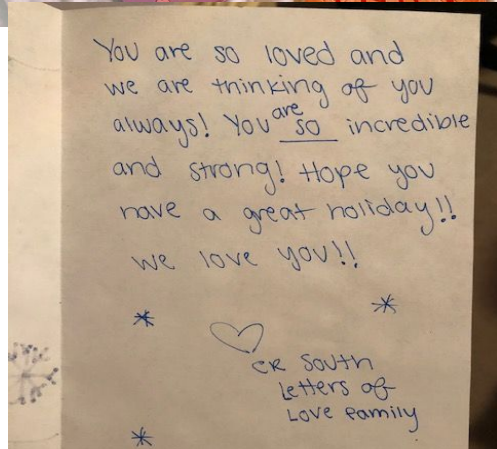 You are so loved and
we are thinking of you
always! You are so incredible
and strong! Hope you
have a great holiday!!
we love you!!
CR South
Letters of
Love Family